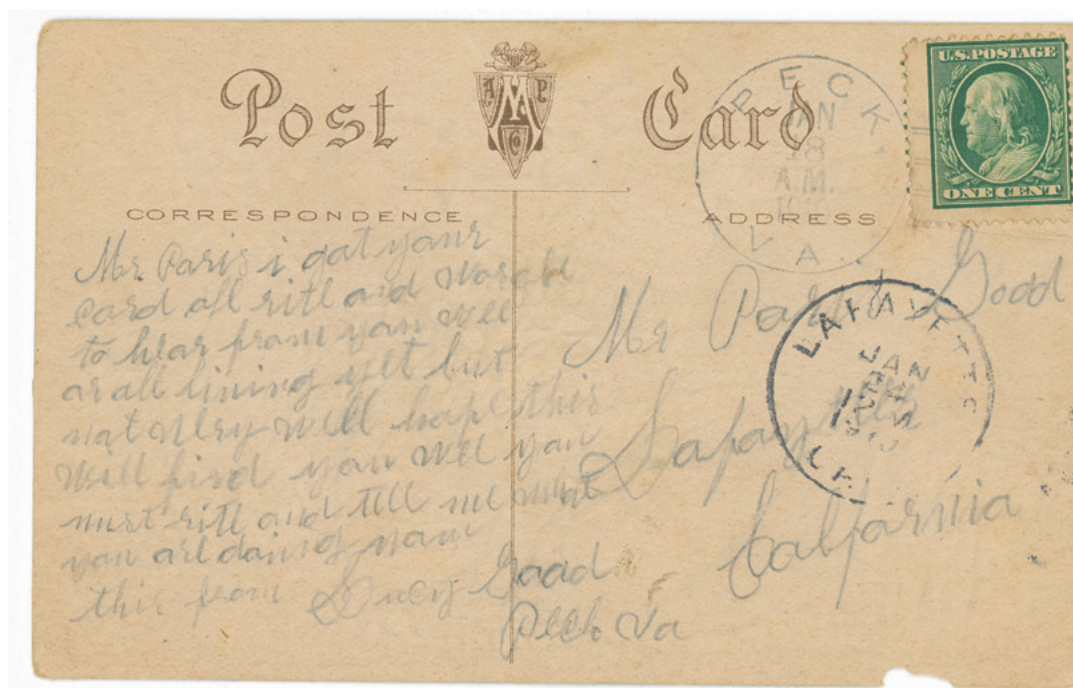 Post Card
A M P
Co
U.S. POSTAGE
ONE CENT
PECK
JAN
18
A.M.
VA.
CORRESPONDENCE
ADDRESS
Mr. Paris i got your
card all rite and
to hear from you well
ar all living yet but
not very well hope this
will find you well you
must rite and tell me what
you are doing now
this from Lucy Good
Peck Va
Mr Paris Good
Lafayette
California
LAFAYETTE
JAN
CAL